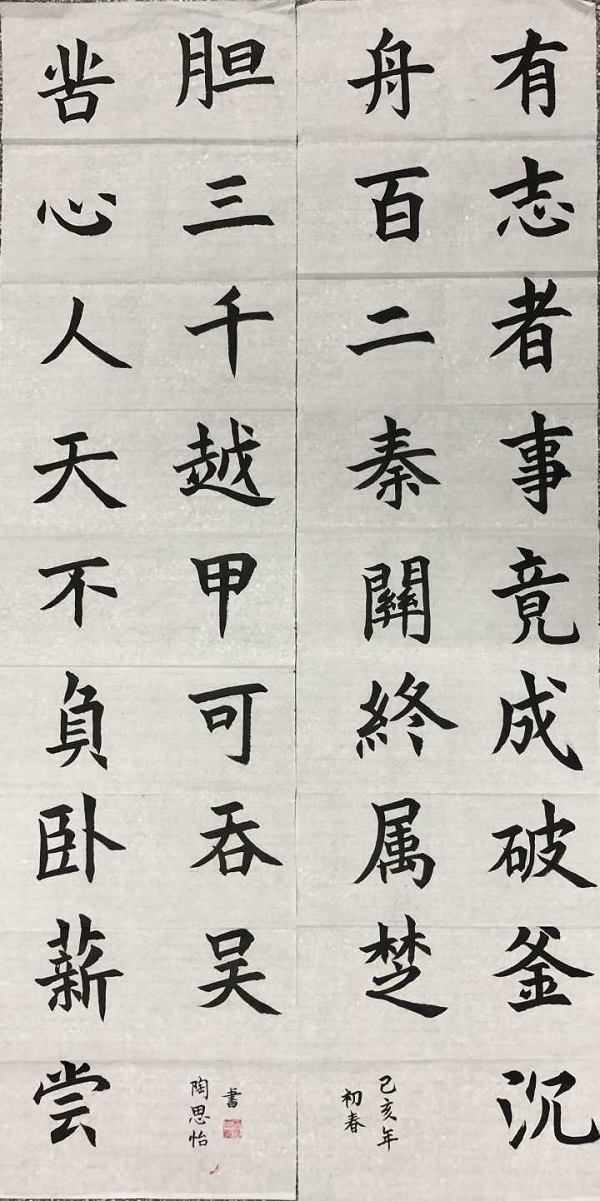 有志者事竟成破釜沉
舟百二秦關終属楚
己亥年
初春
苦心人天不負卧薪尝
胆三千越甲可吞吴
陶思怡
書